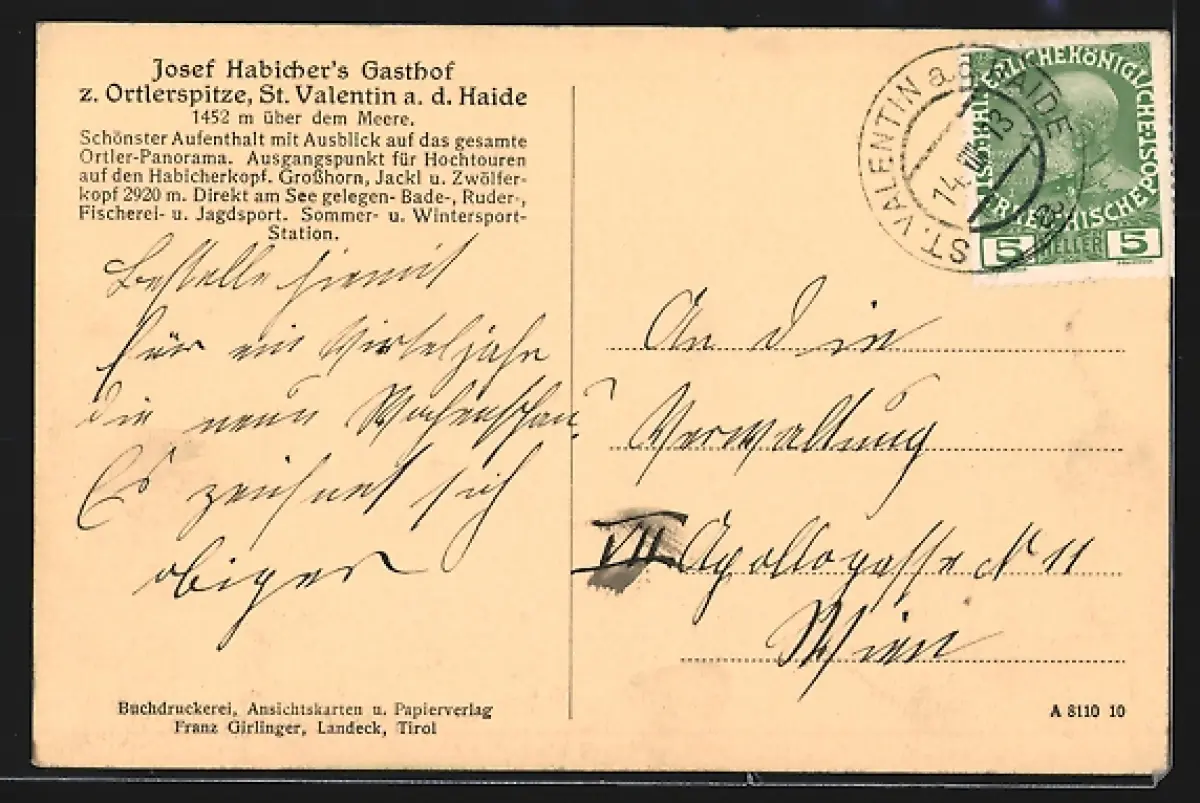 Josef Habicher's Gasthof
z. Ortlerspitze, St. Valentin a. d. Haide
1452 m über dem Meere.
Schönster Aufenthalt mit Ausblick auf das gesamte
Ortler-Panorama. Ausgangspunkt für Hochtouren
auf den Habicherkopf. Großhorn, Jackl u. Zwölfer-
kopf 2920 m. Direkt am See gelegen- Bade-, Ruder-,
Fischerei- u. Jagdsport. Sommer- u. Wintersport-
Station.
Bestelle hiemit
für ein Virteljahr
die neue Wochenschau
Es zeichnet sich
obiger
Buchdruckerei, Ansichtskarten u. Papierverlag
Franz Girlinger, Landeck, Tirol
ST. VALENTIN a. d. HAIDE
14. VIII. 13
KAISERLICHE KÖNIGLICHE
ÖSTERREICHISCHE POST
5 HELLER 5
An die
Verwaltung
VII Apollogasse N 11
Wien
A 8110 10